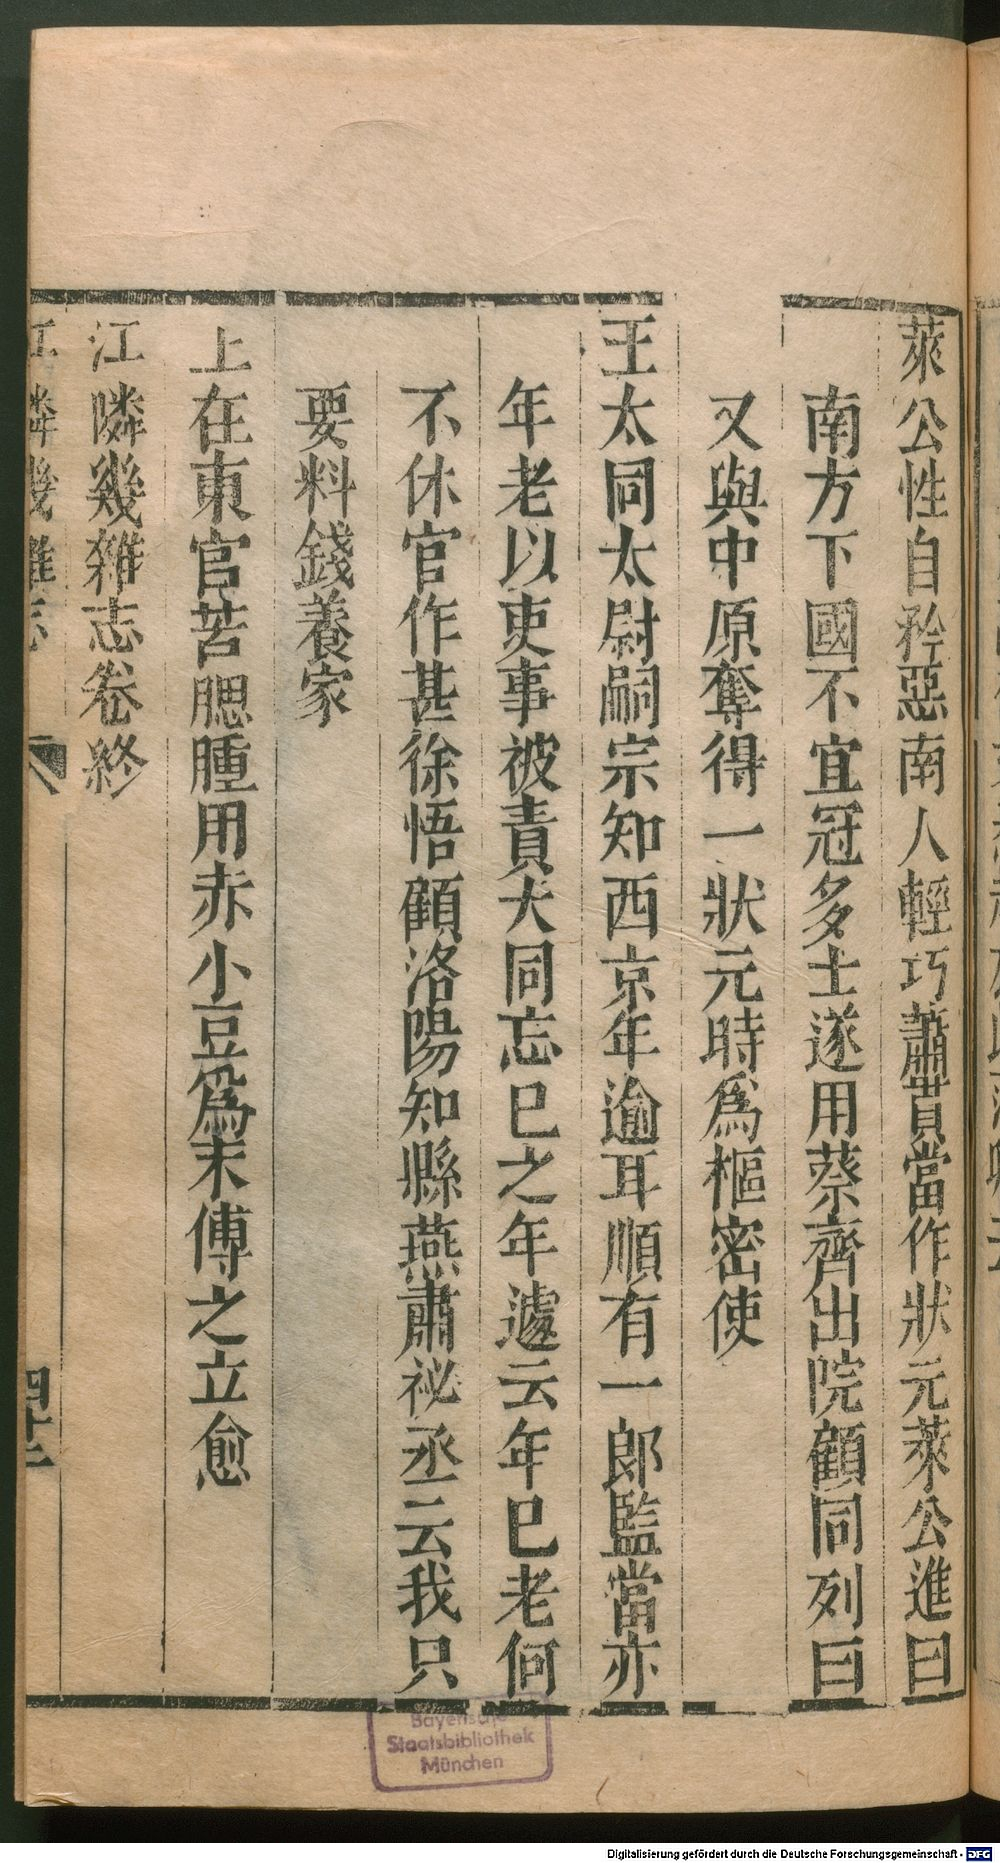 萊公性自矜惡南人輕巧蕭貫當作狀元萊公進曰
南方下國不宜冠多士遂用蔡齊出院顧同列曰
又與中原奪得一狀元時爲樞密使
王太同太尉嗣宗知西京年逾耳順有一郎監當亦
年老以吏事被責大同忘已之年遽云年已老何
不休官作甚徐悟顧洛陽知縣燕肅祕丞云我只
要料錢養家
上在東官苦腮腫用赤小豆爲末傅之立愈
江隣幾雜志卷終
江隣幾雜志
四十二
Bayerische
Staatsbibliothek
München
Digitalisierung gefördert durch die Deutsche Forschungsgemeinschaft - DFG